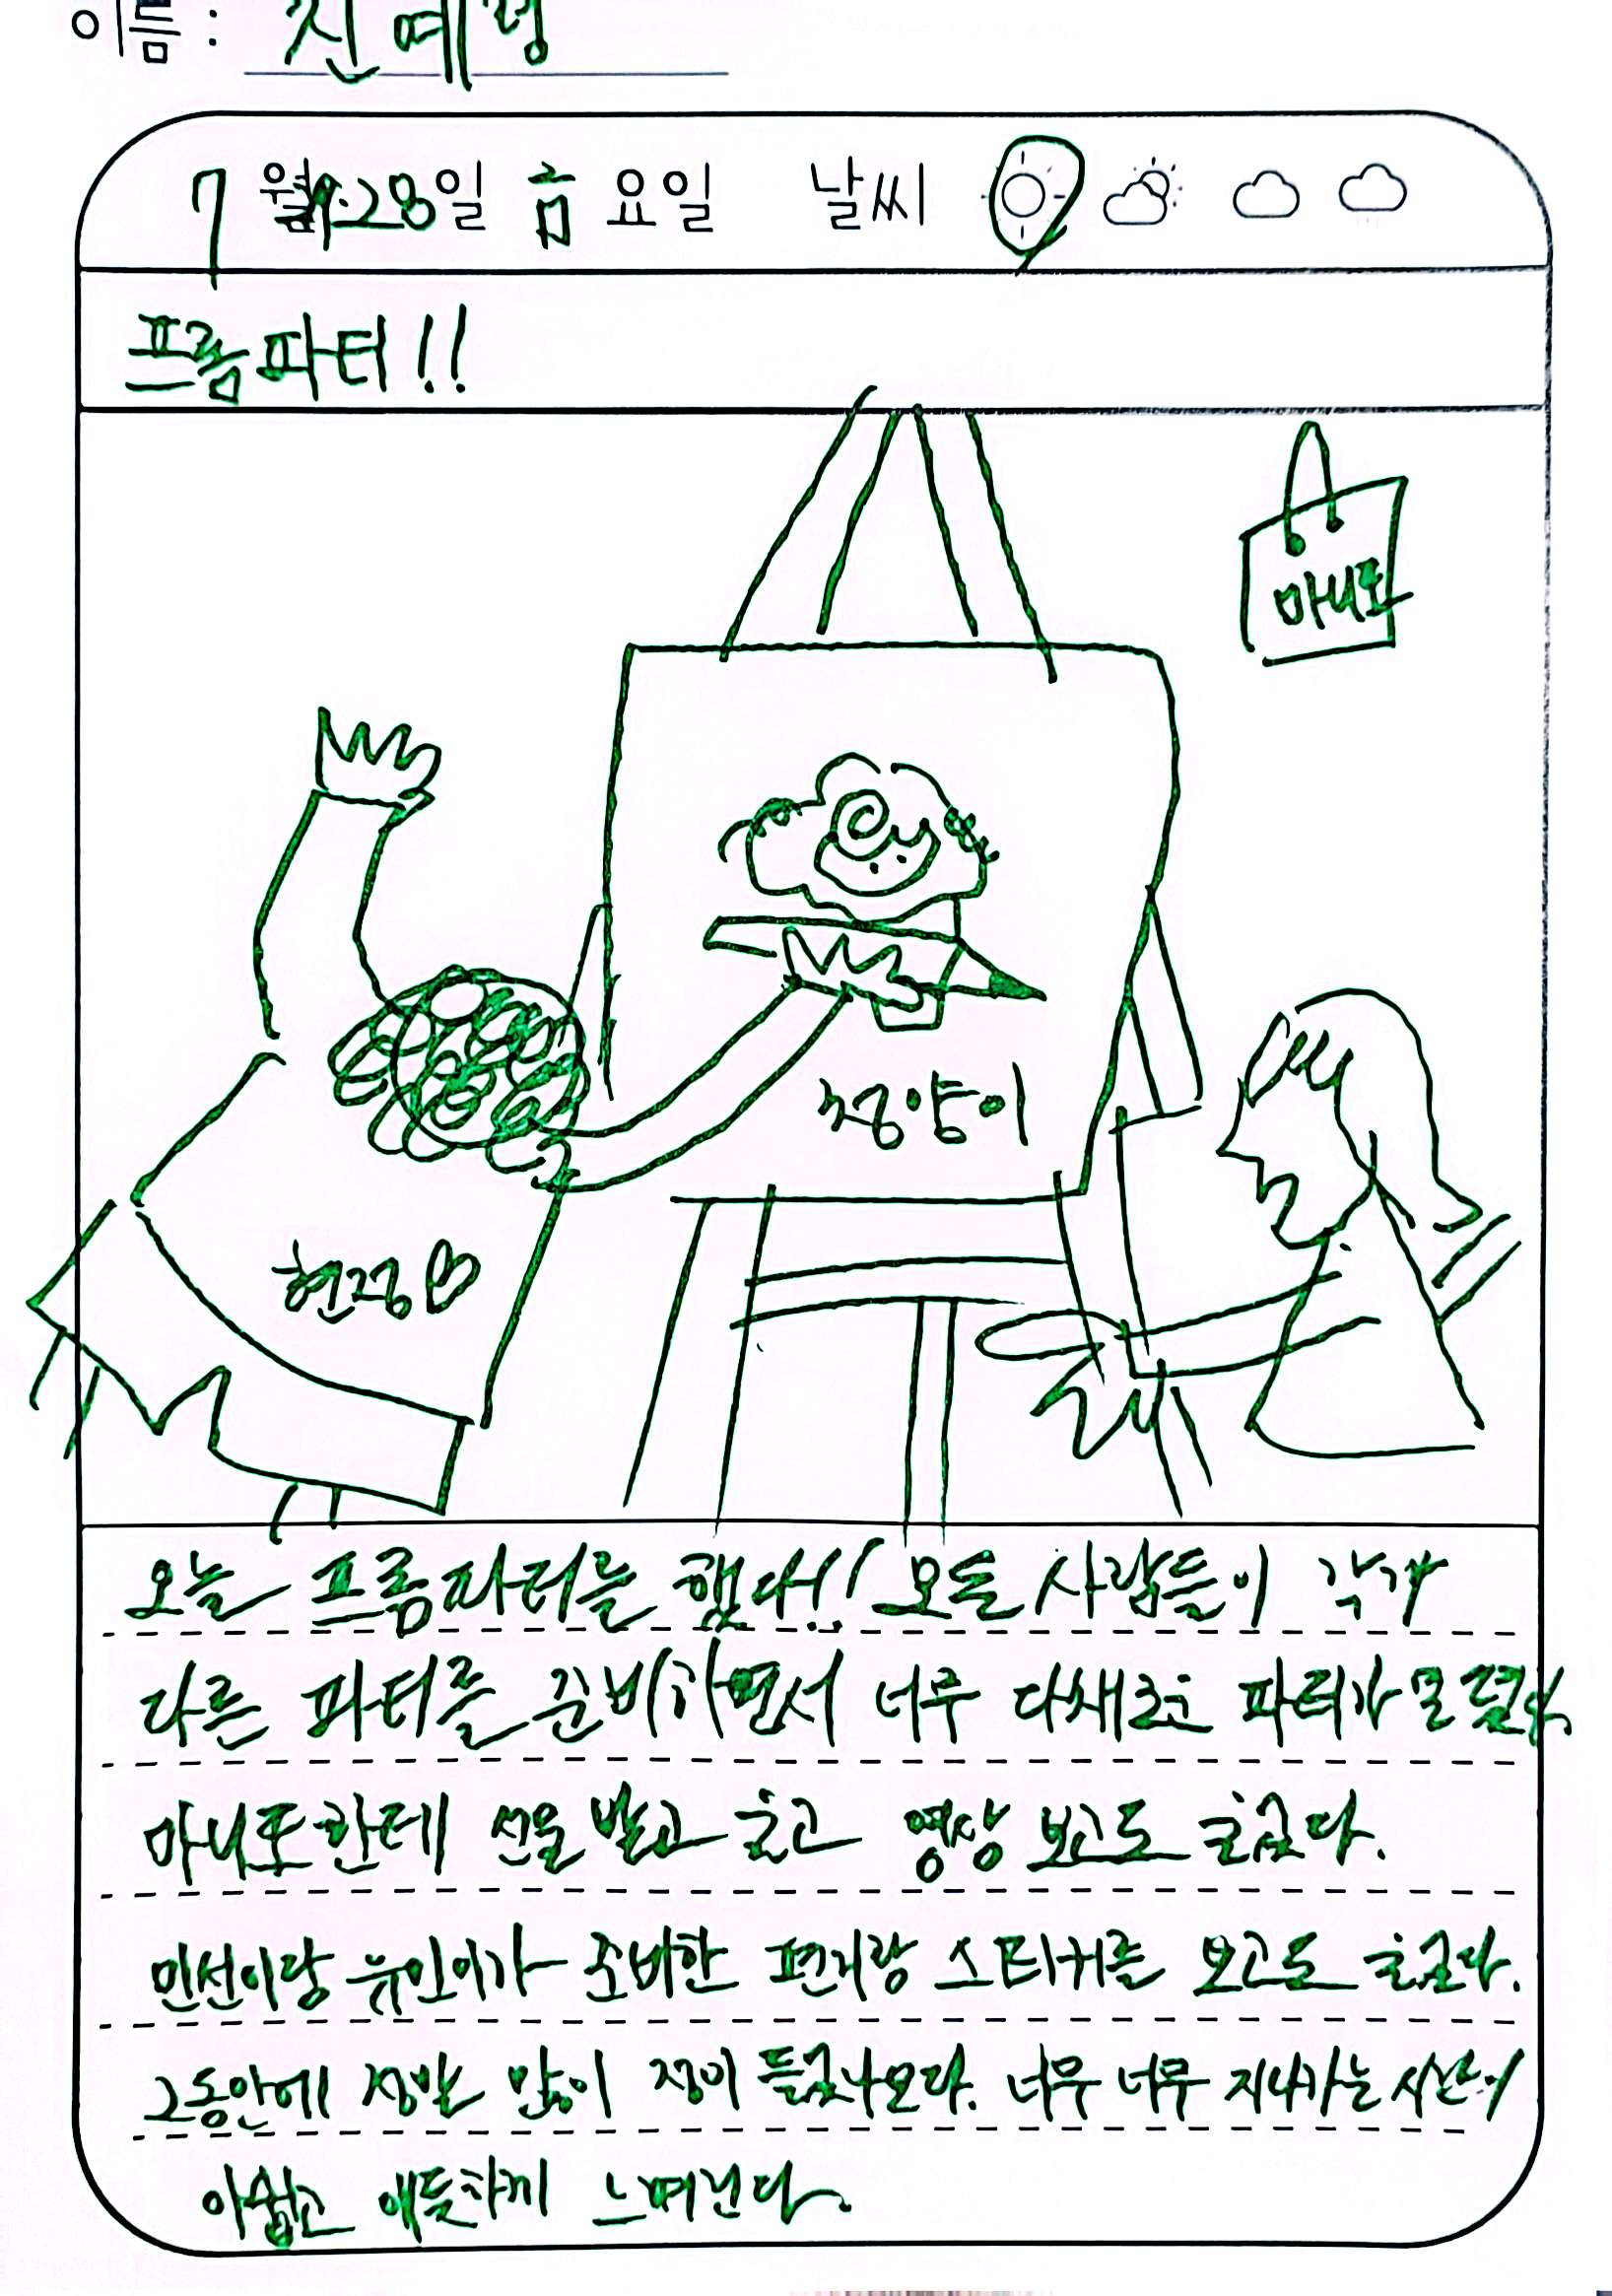 이름 :
7월 28일 금요일 날씨
프롬파티!!
마니또
정양이
현정
오늘 프롬파티를 했다!! 모든 사람들이 각각
다른 파티를 준비하면서 너무 다채로운 파티가
마니또한테 선물 받고 울고 영상 보고도 울었다.
민선이랑 유민이가 준비한 편지랑 스티커를 보고도 울었다.
그동안에 정말 많이 정이 들었나보다. 너무 너무 지나가는 시간이
아쉽고 애틋하게 느껴진다.